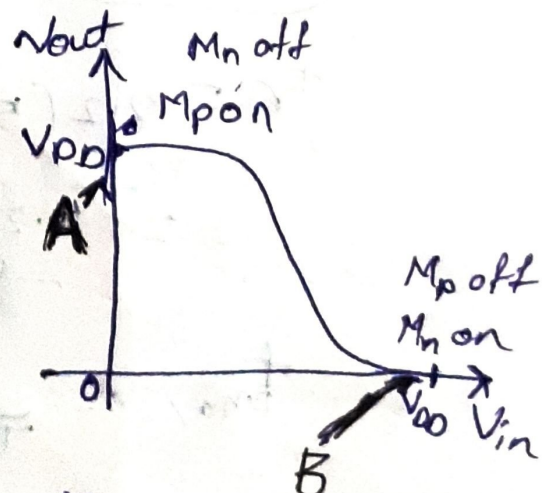 Vout
Mn off
Mp on
VDD
A
Mp off
Mn on
0
VDD
Vin
B